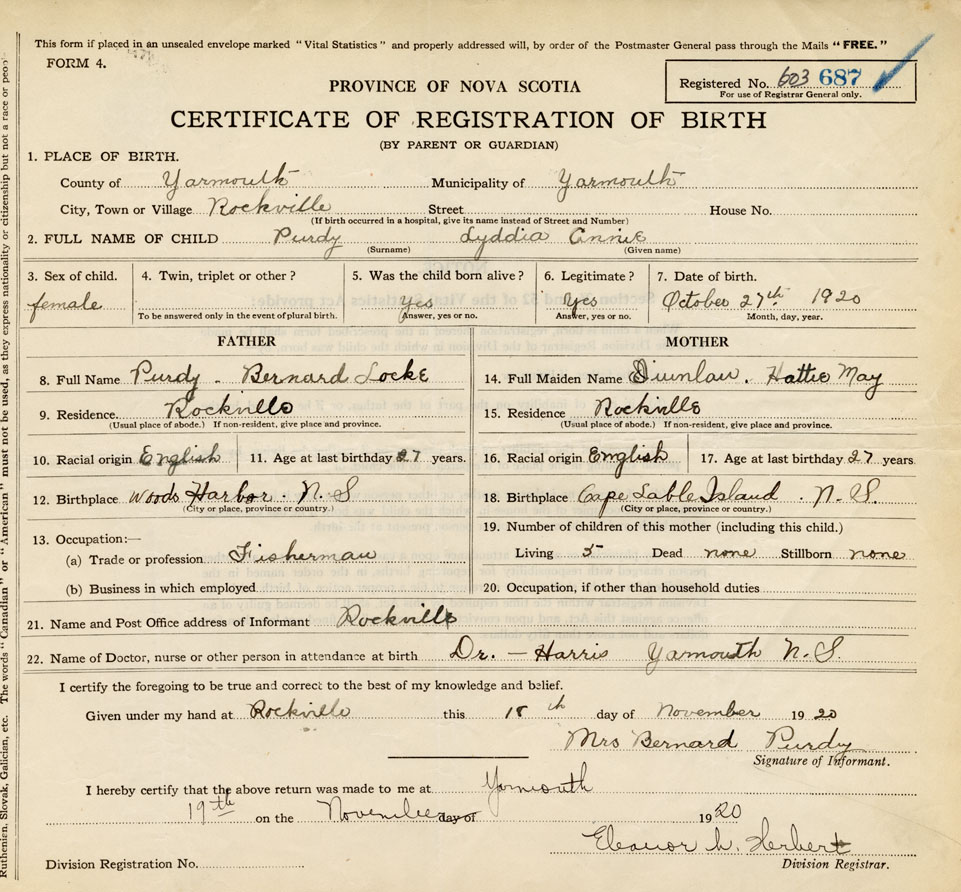 This form if placed in an unsealed envelope marked "Vital Statistics" and properly addressed will, by order of the Postmaster General pass through the Mails "FREE."
FORM 4.
Registered No. 603 687
For use of Registrar General only.
PROVINCE OF NOVA SCOTIA
CERTIFICATE OF REGISTRATION OF BIRTH
(BY PARENT OR GUARDIAN)
1. PLACE OF BIRTH.
County of Yarmouth Municipality of Yarmouth
City, Town or Village Rockville Street House No.
(If birth occurred in a hospital, give its name instead of Street and Number)
2. FULL NAME OF CHILD Purdy Lyddia Annie
(Surname) (Given name)
3. Sex of child. 4. Twin, triplet or other? 5. Was the child born alive? 6. Legitimate? 7. Date of birth.
female Yes Yes October 27th 1920
To be answered only in the event of plural birth. Answer, yes or no. Answer, yes or no. Month, day, year.
FATHER
8. Full Name Purdy. Bernard Locke
9. Residence. Rockville
(Usual place of abode.) If non-resident, give place and province.
10. Racial origin English 11. Age at last birthday 27 years.
12. Birthplace Woods Harbor. N.S
(City or place, province or country.)
13. Occupation:—
(a) Trade or profession Fisherman
(b) Business in which employed
MOTHER
14. Full Maiden Name Hattie May
15. Residence Rockville
(Usual place of abode.) If non-resident, give place and province.
16. Racial origin English 17. Age at last birthday 27 years
18. Birthplace Cape Sable Island. N.S.
(City or place, province or country.)
19. Number of children of this mother (including this child.)
Living 5 Dead none Stillborn none
20. Occupation, if other than household duties
21. Name and Post Office address of Informant Rockville
22. Name of Doctor, nurse or other person in attendance at birth Dr. — Harris Yamouth N.S.
I certify the foregoing to be true and correct to the best of my knowledge and belief.
Given under my hand at Rockville this 18th day of November 1920
Mrs Bernard Purdy
Signature of Informant.
I hereby certify that the above return was made to me at Yarmouth
19th on the November day of 1920
Eleanor h. Herbert
Division Registrar.
Division Registration No.
Ruthenien, Slovak, Galician, etc. The words "Canadian" or "American" must not be used, as they express nationality or citizenship but not a race or peop